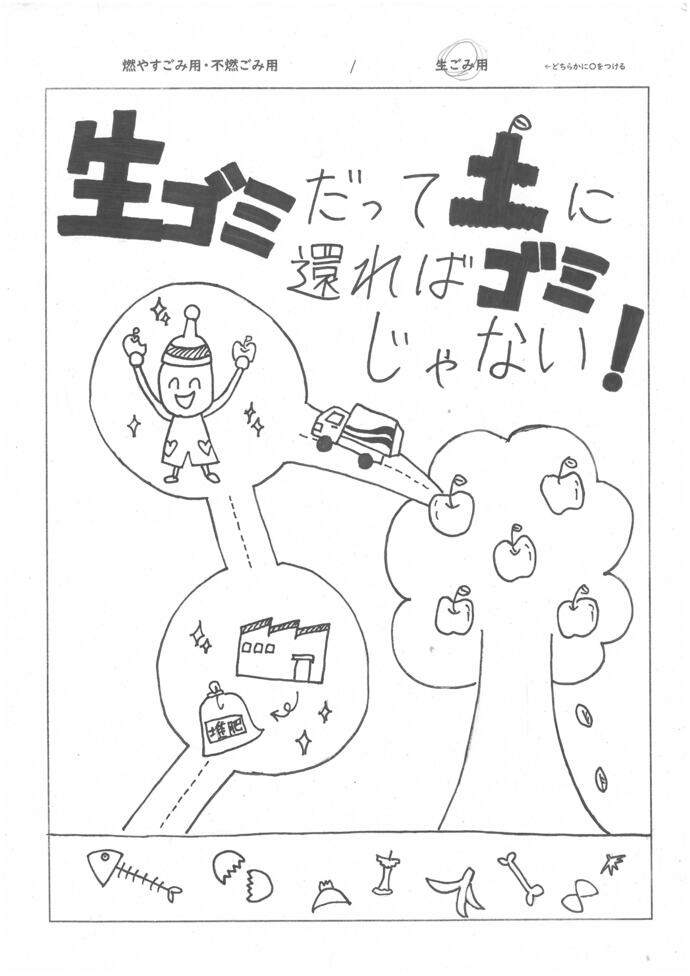 燃やすごみ用・不燃ごみ用 / 生ごみ用 ←どちらかに〇をつける
生ゴミだって土に
還ればゴミ
じゃない!
堆肥